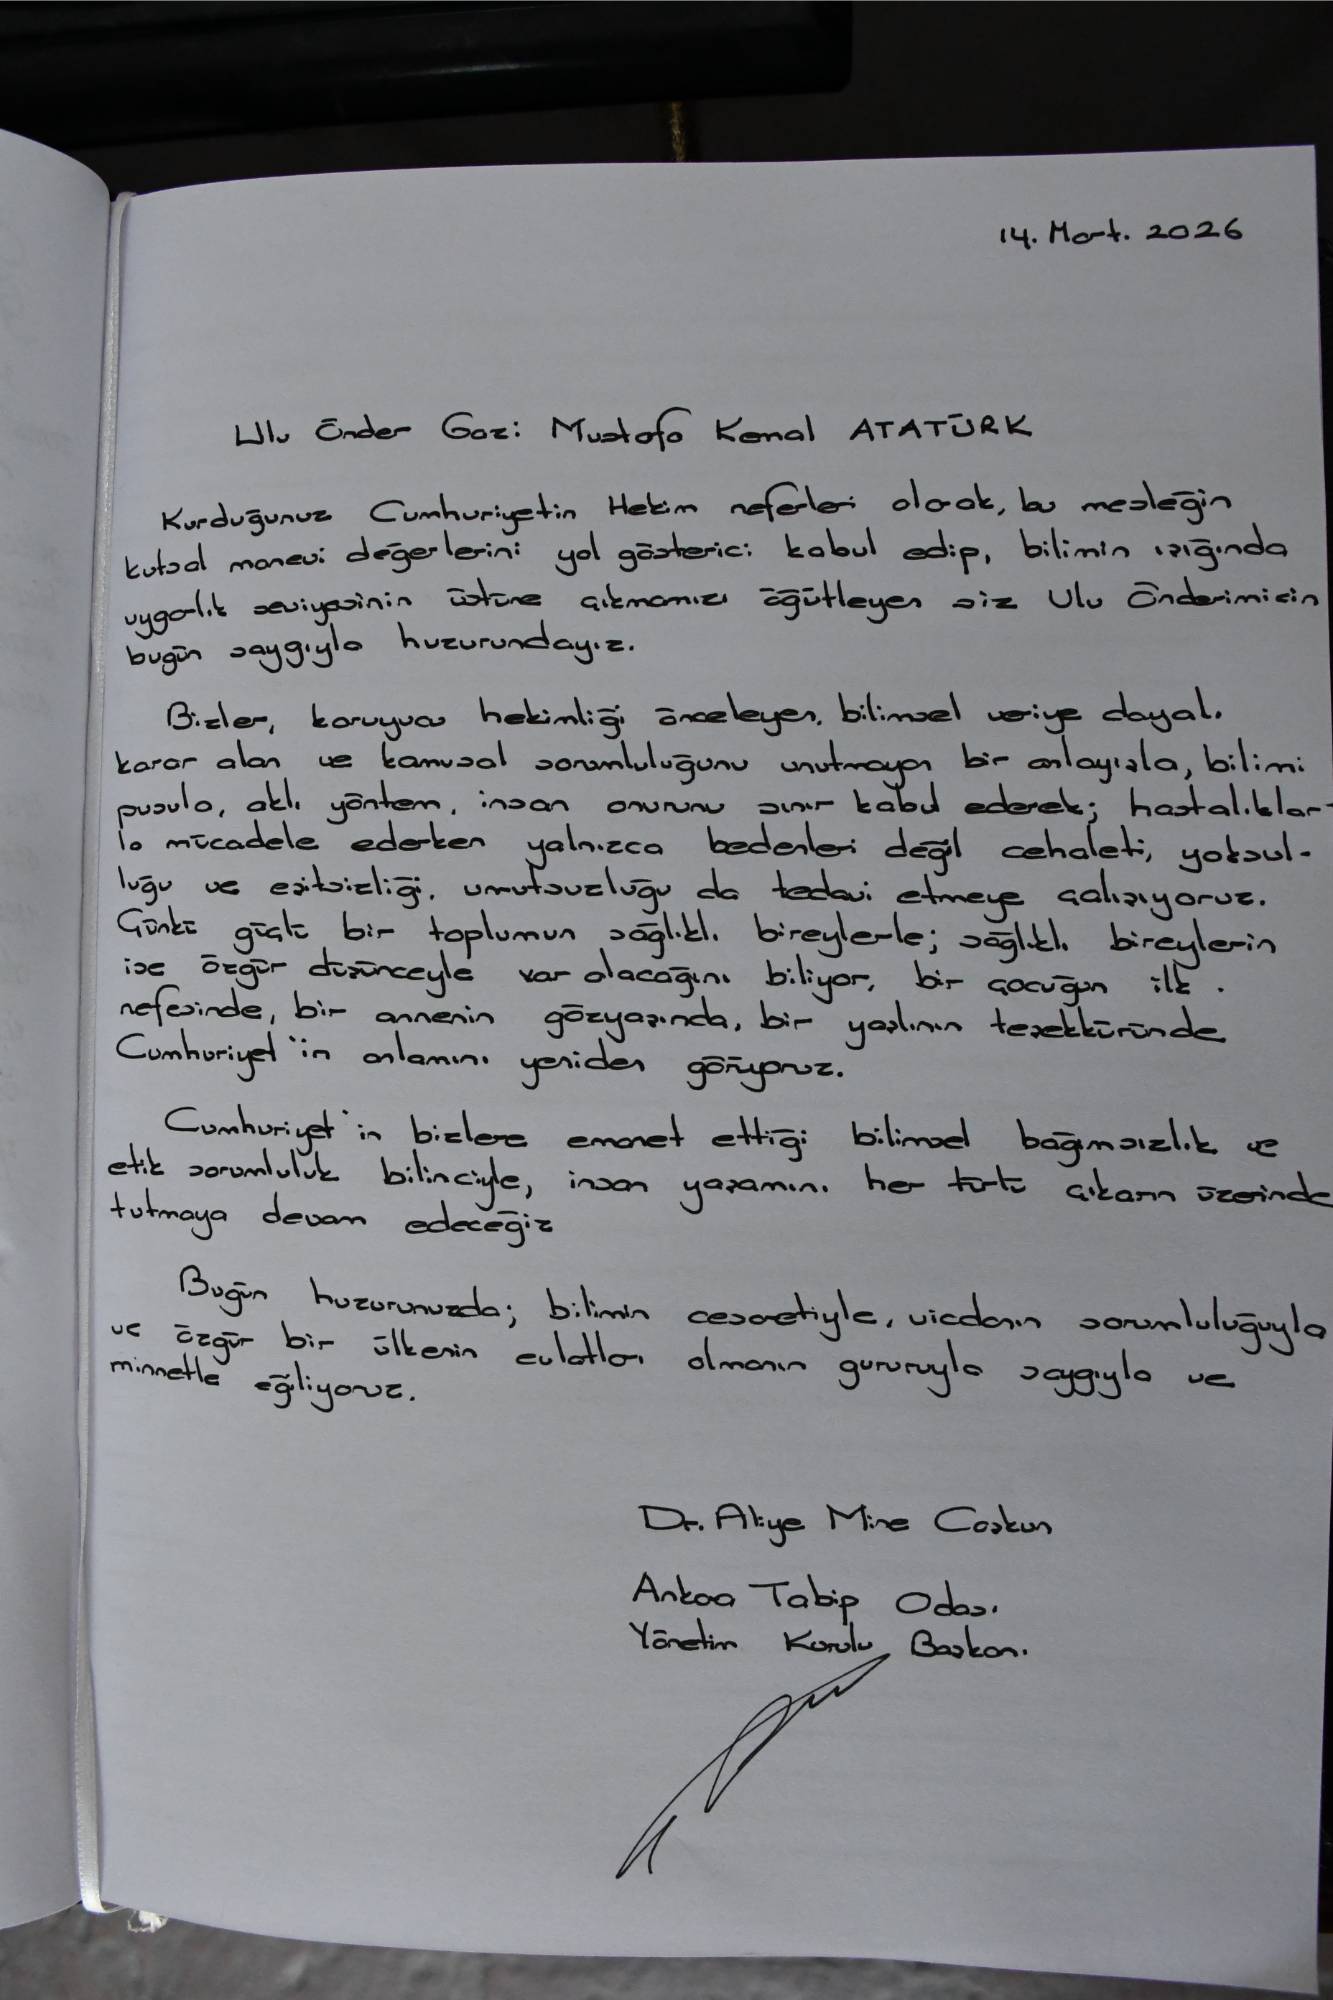 14. Mart. 2026
Ulu Önder Gazi Mustafa Kemal ATATÜRK
Kurduğunuz Cumhuriyetin Hekim neferleri olarak, bu mesleğin
kutsal manevi değerlerini yol gösterici kabul edip, bilimin ışığında
uygarlık seviyesinin üstüne çıkmamızı öğütleyen siz Ulu Önderimizin
bugün saygıyla huzurundayız.
Bizler, koruyucu hekimliği önceleyen, bilimsel veriye dayalı
karar alan ve kamusal sorumluluğunu unutmayan bir anlayışla, bilimi
pusula, aklı yöntem, insan onurunu sınır kabul ederek; hastalıklar-
la mücadele ederken yalnızca bedenleri değil cehaleti, yoksul-
luğu ve eşitsizliği, umutsuzluğu da tedavi etmeye çalışıyoruz.
Çünkü güçlü bir toplumun sağlıklı bireylerle; sağlıklı bireylerin
ise özgür düşünceyle var olacağını biliyor, bir çocuğun ilk
nefesinde, bir annenin gözyaşında, bir yaşlının teşekküründe
Cumhuriyet'in anlamını yeniden görüyoruz.
Cumhuriyet'in bizlere emanet ettiği bilimsel bağımsızlık ve
etik sorumluluk bilinciyle, insan yaşamını her türlü çıkarın üzerinde
tutmaya devam edeceğiz
Bugün huzurunuzda; bilimin cesaretiyle, vicdanın sorumluluğuyla
ve özgür bir ülkenin evlatları olmanın gururuyla saygıyla ve
minnetle eğiliyoruz.
Dr. Aliye Mine Coşkun
Ankara Tabip Odası
Yönetim Kurulu Başkanı